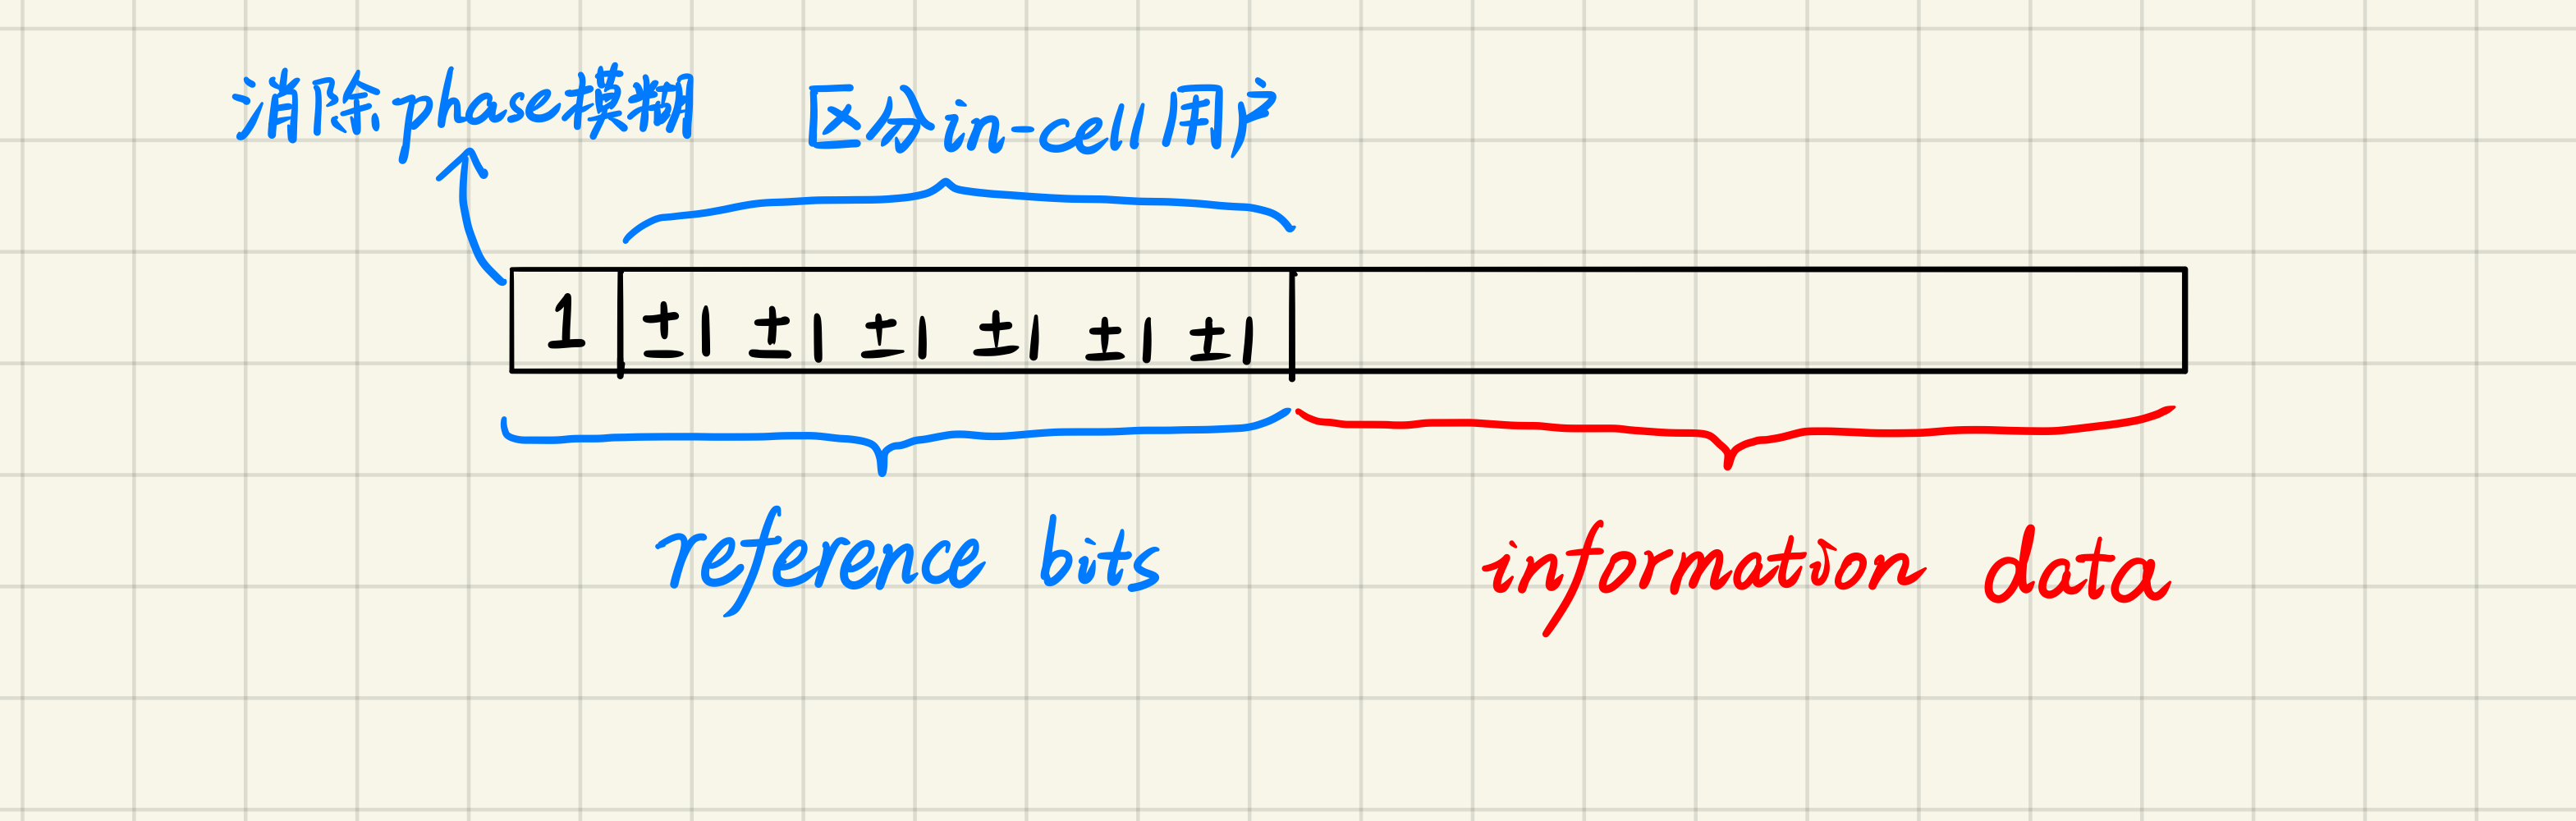 消除phase模糊
区分in-cell用户
1 ±1 ±1 ±1 ±1 ±1 ±1
reference bits
information data